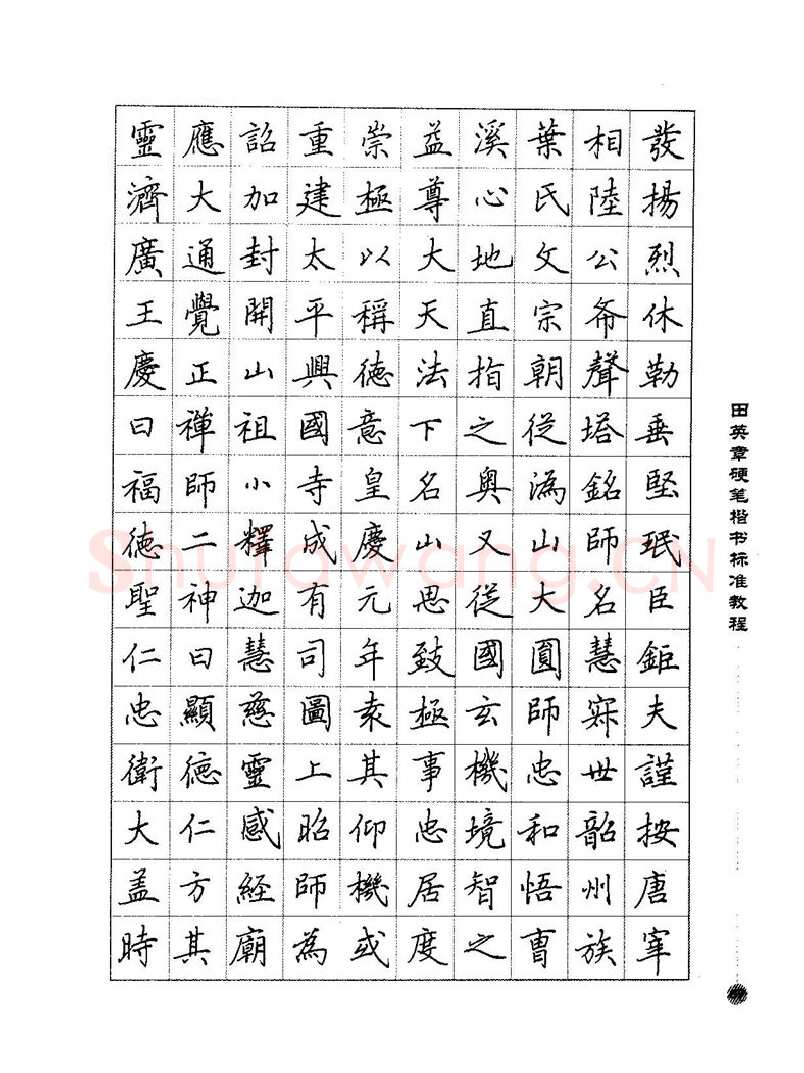 發揚烈休勒垂堅珉臣鉅夫謹按唐宰
相陸公希聲塔銘師名慧寂世韶州族
葉氏文宗朝從溈山大圓師忠和悟曹
溪心地直指之奥又從國玄機境智之
益尊大天法下名山思致極事忠居度
崇極以稱德意皇慶元年袁其仰機或
重建太平興國寺成有司圖上昭師為
詔加封開山祖小釋迦慧慈靈感經廟
應大通覺正禪師二神曰顯德仁方其
靈濟廣王慶曰福德聖仁忠衛大蓋時
田英章硬笔楷书标准教程
Shufawang.CN